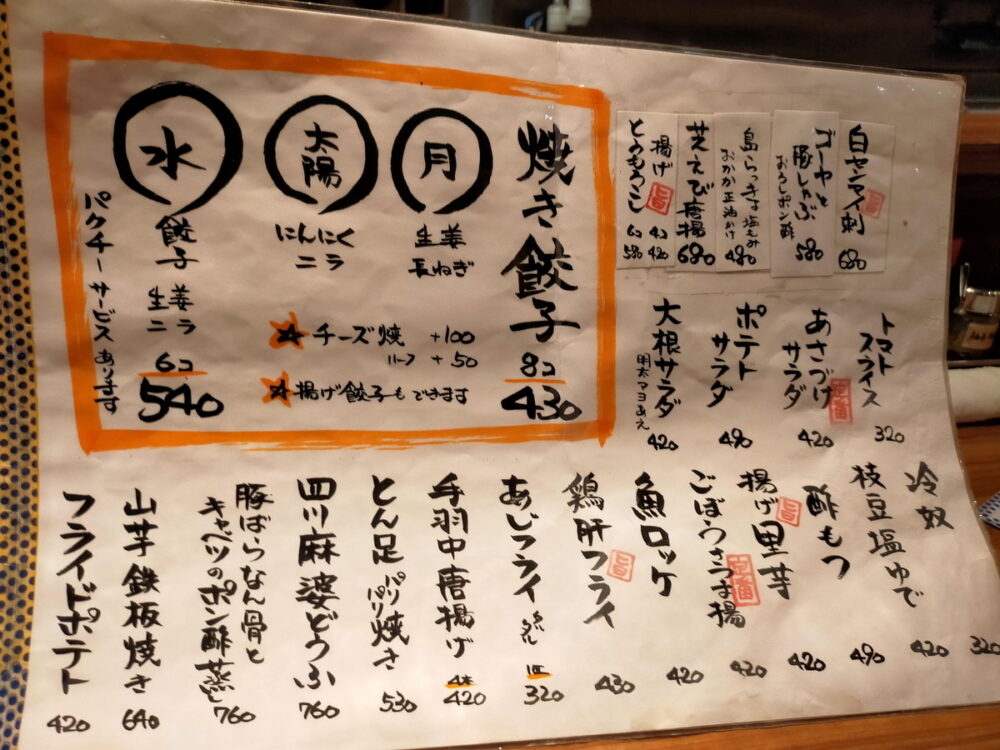 焼き餃子 8コ 430
月 生姜 長ねぎ
太陽 にんにく ニラ
☆チーズ焼 +100
ハーフ +50
☆揚げ餃子もできます
水 餃子 生姜 ニラ 6コ 540
パクチーサービスあります
白センマイ刺 旨 680
ゴーヤと豚しゃぶ おろしポン酢 580
島らっきょ塩もみ おかか正油かけ 490
芝えび唐揚 680
揚げとうもろこし 旨 4コ 420 6コ 580
トマトスライス 320
あさづけサラダ 定番 420
ポテトサラダ 490
大根サラダ 明太マヨあえ 420
冷奴 320
枝豆塩ゆで 420
酢もつ 490
揚げ里芋 旨 420
ごぼうさつま揚 定番 420
魚ロッケ 420
鶏肝フライ 旨 430
あじフライ タルタル 1コ 320
手羽中唐揚げ 4本 420
とん足パリパリ焼き 530
四川麻婆どうふ 760
豚ばらなん骨とキャベツのポン酢蒸し 760
山芋鉄板焼き 640
フライドポテト 420